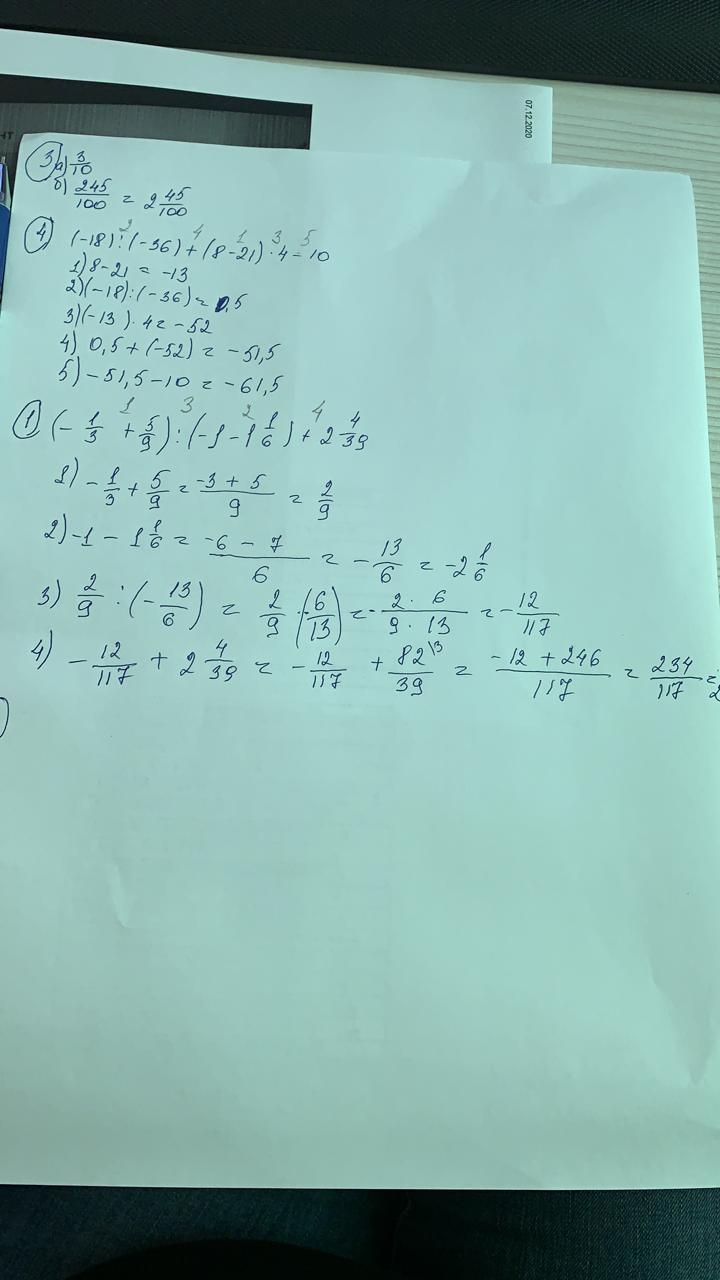 07.12.2020
НТ
3 а) 3/10
б) 245/100 = 2 45/100
4 (-18):(-36)+(8-21)·4-10
2 4 1 3 5
1) 8-21 = -13
2) (-18):(-36) = 0,5
3) (-13)·4 = -52
4) 0,5+(-52) = -51,5
5) -51,5-10 = -61,5
1 3 2 4
1 (-1/3 + 5/9):(-1-1 1/6)+2 4/39
1) -1/3 + 5/9 = -3+5/9 = 2/9
2) -1 - 1 1/6 = -6-7/6 = -13/6 = -2 1/6
3) 2/9 :(-13/6) = 2/9 ·(-6/13) = -2·6/9·13 = -12/117
4) -12/117 + 2 4/39 = -12/117 + 82\3/39 = -12+246/117 = 234/117 = 2